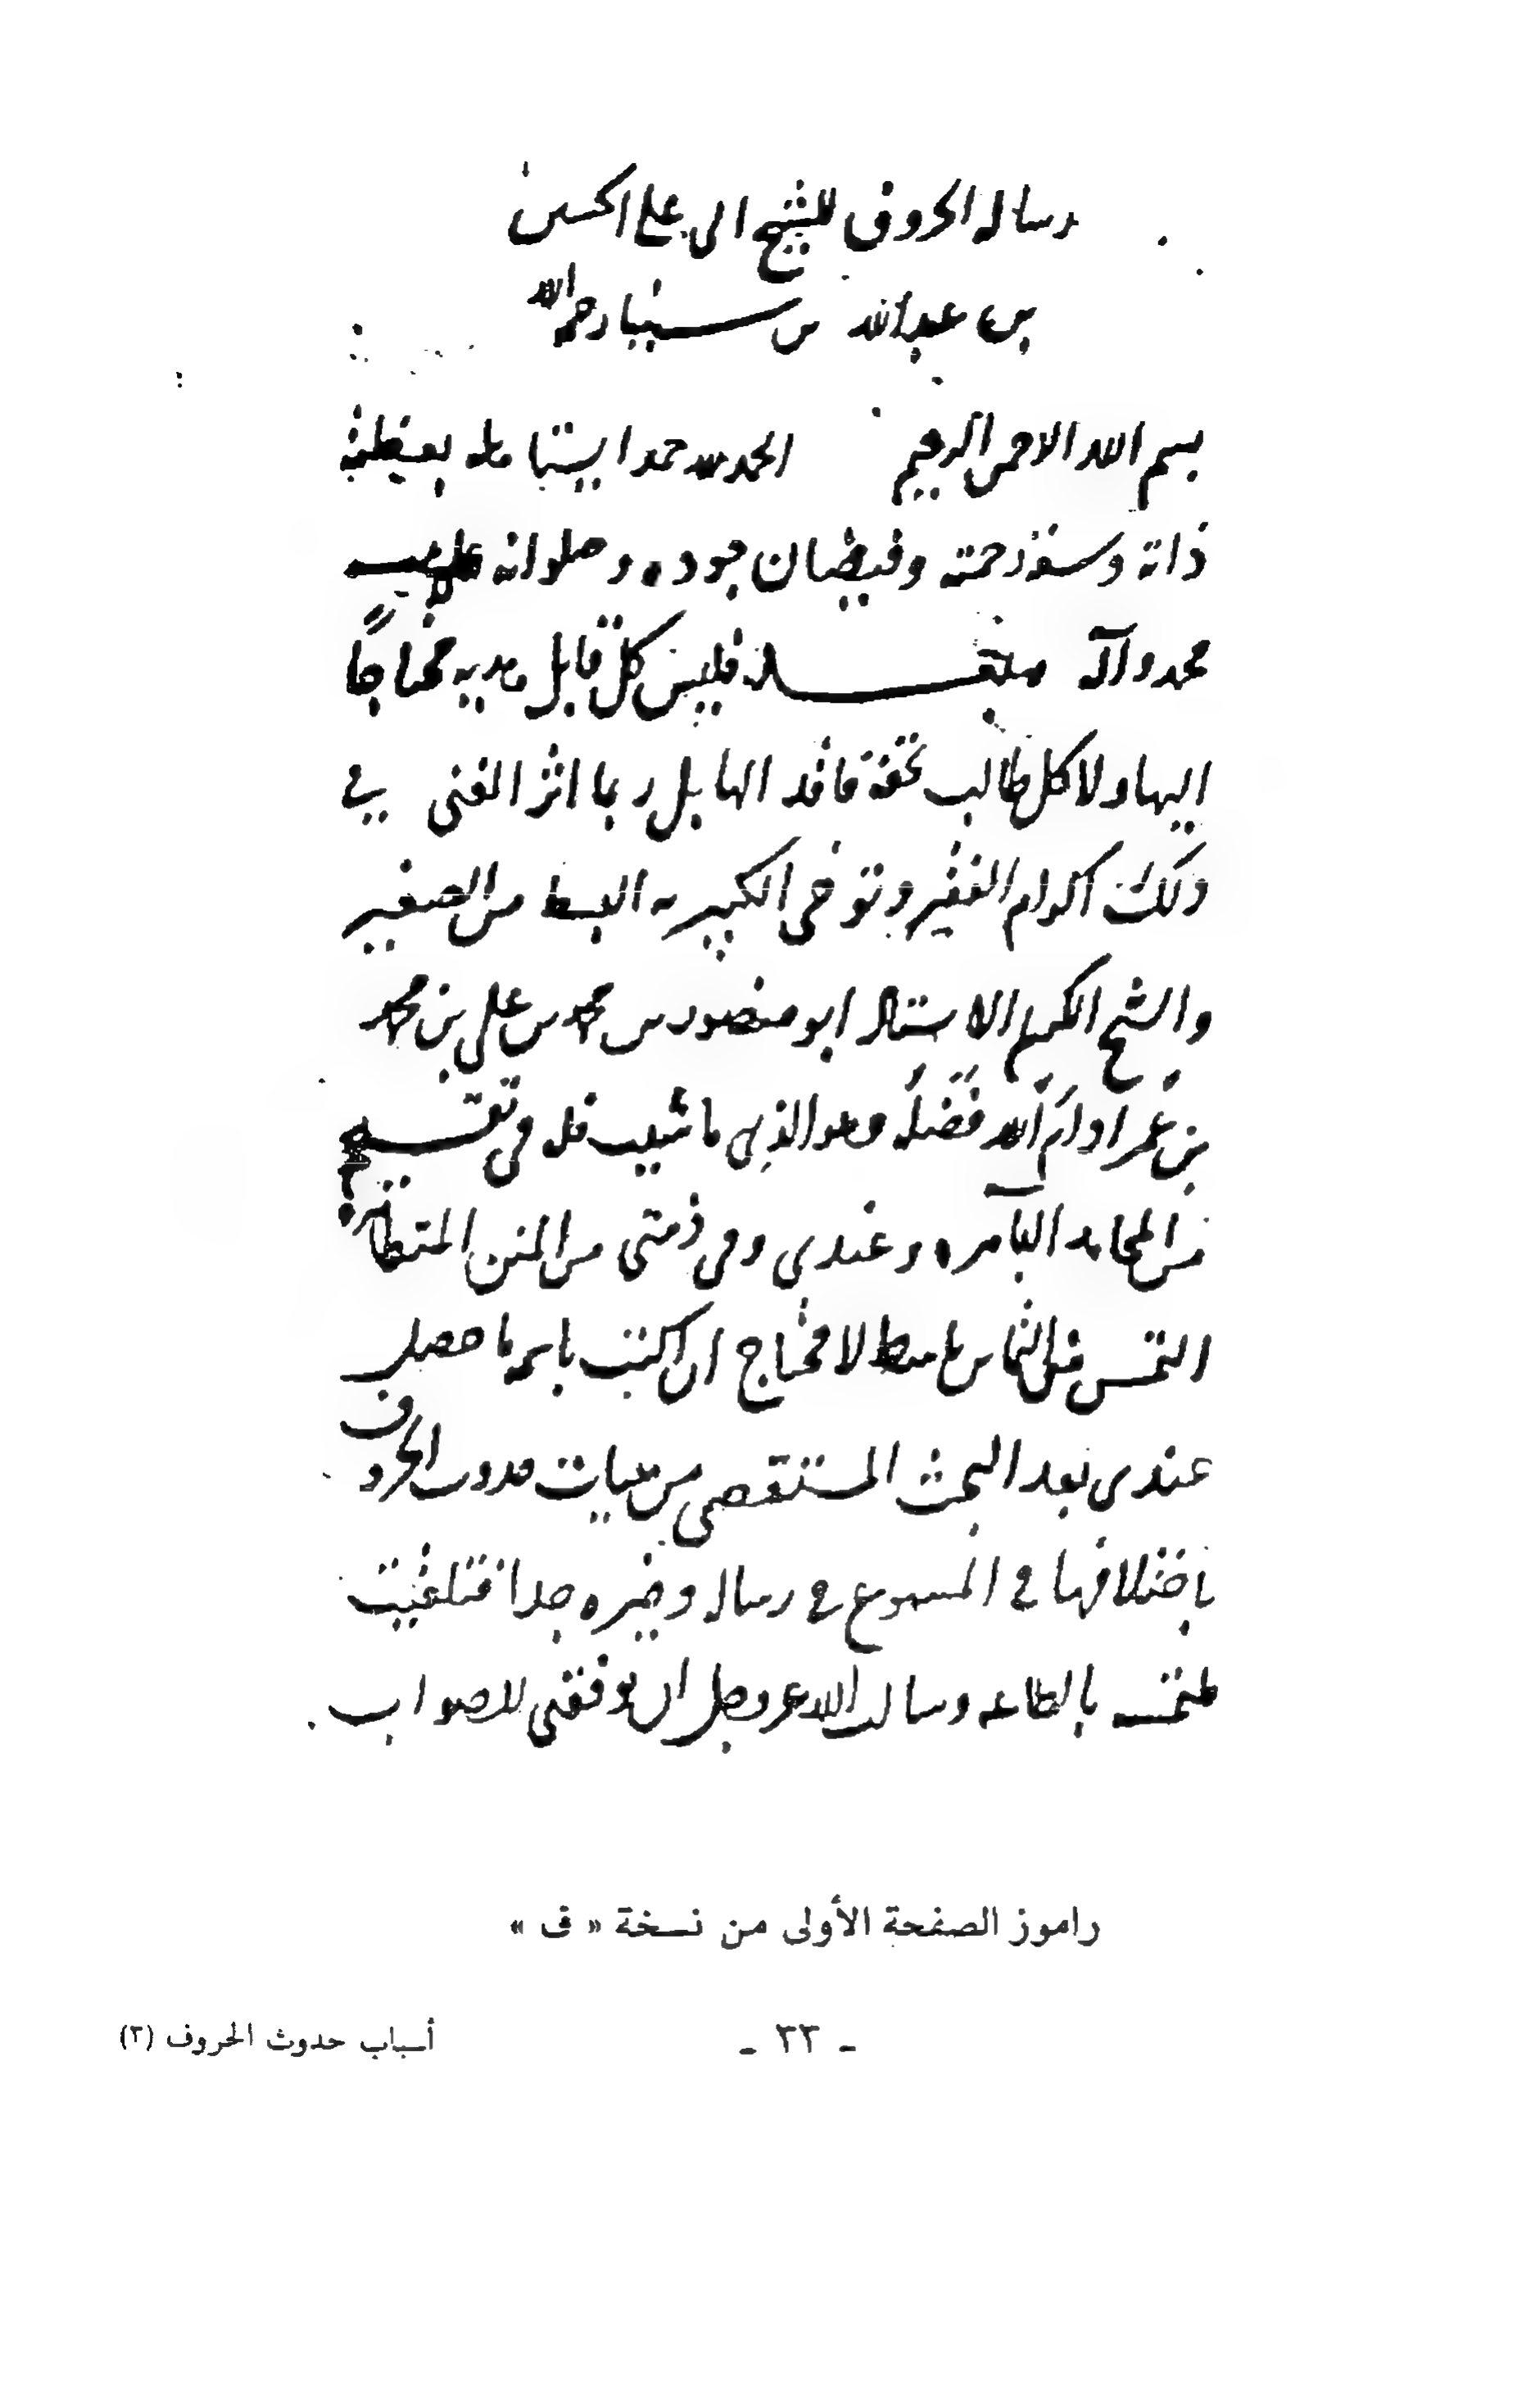 رسالة الحروف للشيخ ابى على الحسين
بن عبد الله بن سينا رحمه الله
بسم الله الرحمن الرحيم الحمد لله حمدا يستاهله بعظمة
ذاته وسعة رحمته وفيضان جوده وصلواته على نبيه
محمد وآله وبعد فليس كل قابل هدية محتاجًا
اليها ولا كل طالب تحفة فاقد الها بل ربما اثر الغنى في
ذلك اكرام الفقير وتوخى الكبير به البسط من الصغير
والشيخ الكريم الاستاذ ابو منصور بن محمد بن على بن محمد
بن عمر ادام الله فضله وهو الذى ما شيب فى
من المحامد الباهره وعندى وفى ذمتى من المنن المتظاهرة
التمس منى التماس باسط لا محتاج ان اكتب باسمه ما حصل
عندى بعد البحث المستقصى من اسباب حدوث الحروف
باختلافها فى المسموع فى رسالة وجيزه جدا فتلقيت
ملتمسه بالطاعه وسالت الله عز وجل ان يوفقنى للصواب
راموز الصفحة الأولى من نسخة « ق »
- ٣٣ -
أسباب حدوث الحروف (٣)